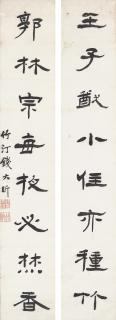 王子猷小住亦種竹
郭林宗每夜必燒香
竹汀錢大昕